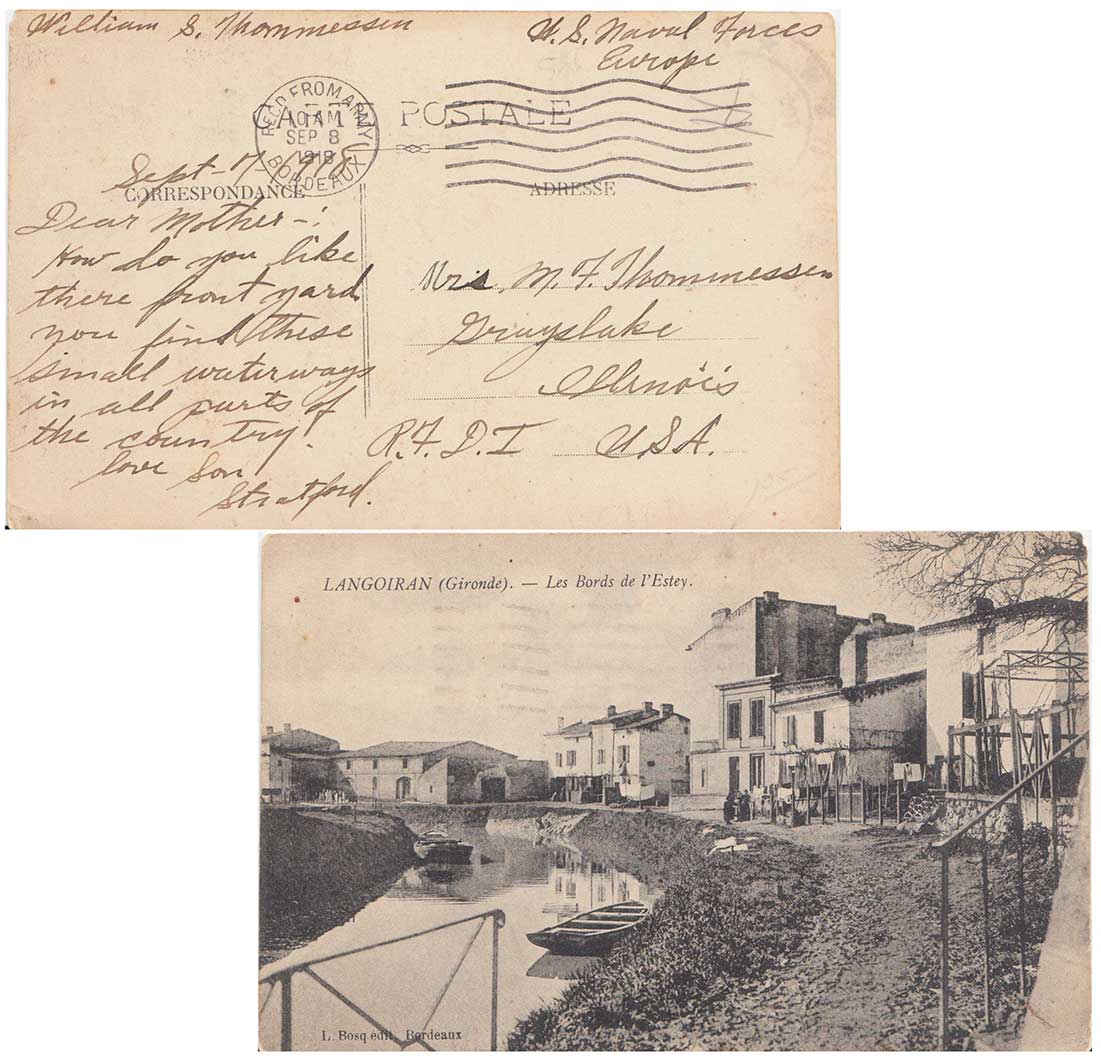 William S. Thommessen
U. S. Naval Forces
Europe
REC'D FROM ARMY
10 AM
SEP 8
1918
BORDEAUX
CARTE POSTALE
Sept-17/1918
CORRESPONDANCE
ADRESSE
Dear Mother-:
How do you like
there front yard
you find these
small waterways
in all parts of
the country!
love Son
Stratford.
Mrs. M. F. Thommessen
Grayslake
Illinois
R.F.D.I U.S.A.
LANGOIRAN (Gironde). — Les Bords de l'Estey.
L. Bosq édit. Bordeaux